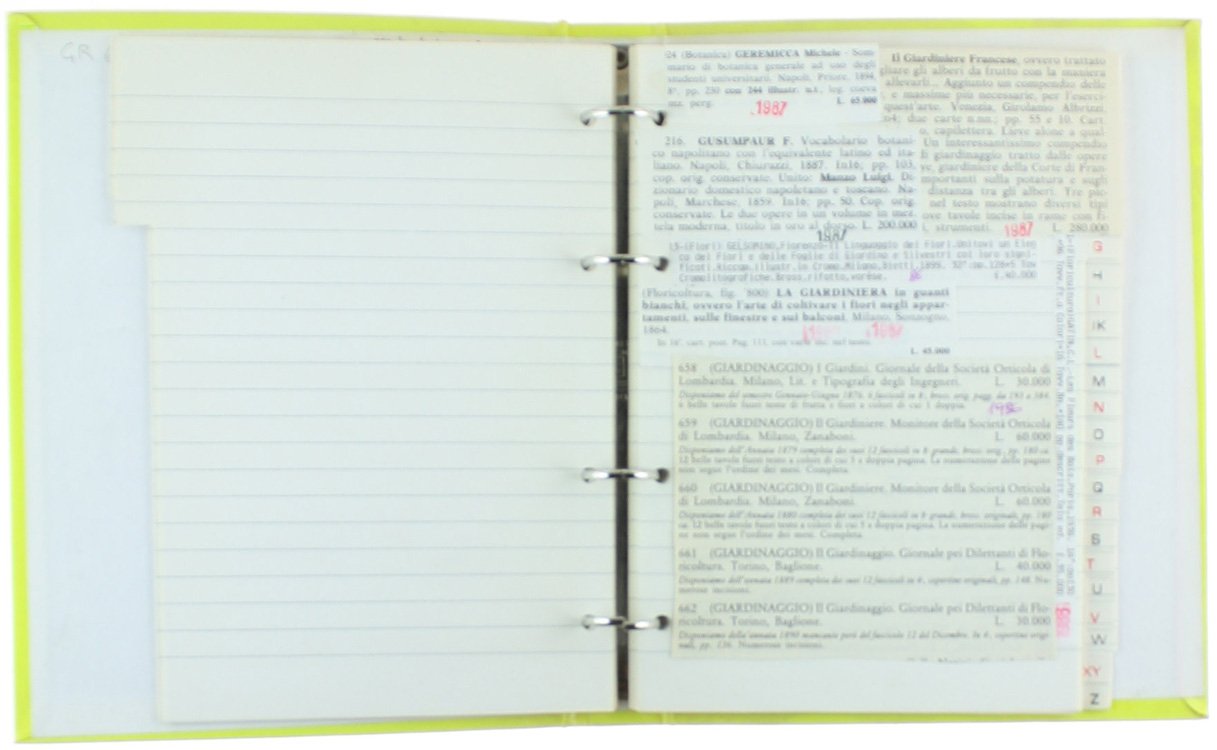 GR
24 (Botanica) GEREMICCA Michele - Som-
mario di botanica generale ad uso degli
studenti universitari. Napoli, Priore, 1894,
8°, pp. 250 con 244 illustr. n.t., leg. coeva
mz. perg. L. 65.000
1987
Il Giardiniere Francese, ovvero trattato
gliare gli alberi da frutto con la maniera
allevarli... Aggiunto un compendio delle
e massime più necessarie, per l'eserci-
quest'arte. Venezia, Girolamo Albrizzi,
due carte n.nn.; pp. 55 e 10. Cart.
capilettera. Lieve alone a qual-
Un interessantissimo compendio
di giardinaggio tratto dalle opere
ve, giardiniere della Corte di Fran-
importanti sulla potatura e sugli
distanza tra gli alberi. Tre pic-
nel testo mostrano diversi tipi
ove tavole incise in rame con fi-
strumenti. 1987 L. 280.000
216. GUSUMPAUR F. Vocabolario botani-
co napolitano con l'equivalente latino ed ita-
liano. Napoli, Chiurazzi, 1887. In16; pp. 103,
cop. orig. conservate. Unito: Manzo Luigi. Di-
zionario domestico napoletano e toscano. Na-
poli, Marchese, 1859. In16; pp. 50. Cop. orig.
conservate. Le due opere in un volume in mez.
tela moderna, titolo in oro al dorso. L. 200.000
1987
15-(Fiori) GELSOMINO,Fiorenzo-Il Linguaggio dei Fiori.Unitovi un Elen
co dei Fiori e delle Foglie di Giardino e Silvestri col loro signi-
ficati.Riccam.illustr.in Cromo.Milano,Bietti,1899.
Cromolitografiche.Bross.rifatto,
(Floricoltura, fig. '800) LA GIARDINIERA in guanti
bianchi, ovvero l'arte di coltivare i fiori negli appar-
tamenti, sulle finestre e sui balconi. Milano, Sonzogno,
1864.
In 16°, cart. post. Pag. 111, con varie inc. nel testo.
1987
L. 45.000
658 (GIARDINAGGIO) I Giardini. Giornale della Società Orticola di
Lombardia. Milano, Lit. e Tipografia degli Ingegneri. L. 30.000
Disponiamo del semestre Gennaio-Giugno 1876. 6 fascicoli in 8; bross. orig. pagg. da 193 a 384.
6 belle tavole fuori testo di frutta e fiori a colori di cui 1 doppia.
659 (GIARDINAGGIO) Il Giardiniere. Monitore della Società Orticola
di Lombardia. Milano, Zanaboni. L. 60.000
Disponiamo dell'Annata 1879 completa dei suoi 12 fascicoli in 8 grande; bross. orig., pp. 180 ca.
12 belle tavole fuori testo a colori di cui 5 a doppia pagina. La numerazione delle pagine
non segue l'ordine dei mesi. Completa.
660 (GIARDINAGGIO) Il Giardiniere. Monitore della Società Orticola
di Lombardia. Milano, Zanaboni. L. 60.000
Disponiamo dell'Annata 1880 completa dei suoi 12 fascicoli in 8 grande; bross. originale, pp. 180
ca. 12 belle tavole fuori testo a colori di cui 5 a doppia pagina. La numerazione delle pagi-
ne non segue l'ordine dei mesi. Completa.
661 (GIARDINAGGIO) Il Giardinaggio. Giornale pei Dilettanti di Flo-
ricoltura. Torino, Baglione. L. 40.000
Disponiamo dell'annata 1889 completa dei suoi 12 fascicoli in 8, copertine originali, pp. 148. Nu-
merose incisioni.
662 (GIARDINAGGIO) Il Giardinaggio. Giornale pei Dilettanti di Flo-
ricoltura. Torino, Baglione. L. 30.000
Disponiamo della annata 1890 mancante però del fascicolo 12 del Dicembre. In 8, copertine origi-
nali, pp. 136. Numerose incisioni.
G
H
I
JK
L
M
N
O
P
Q
R
S
T
U
V
W
XY
Z